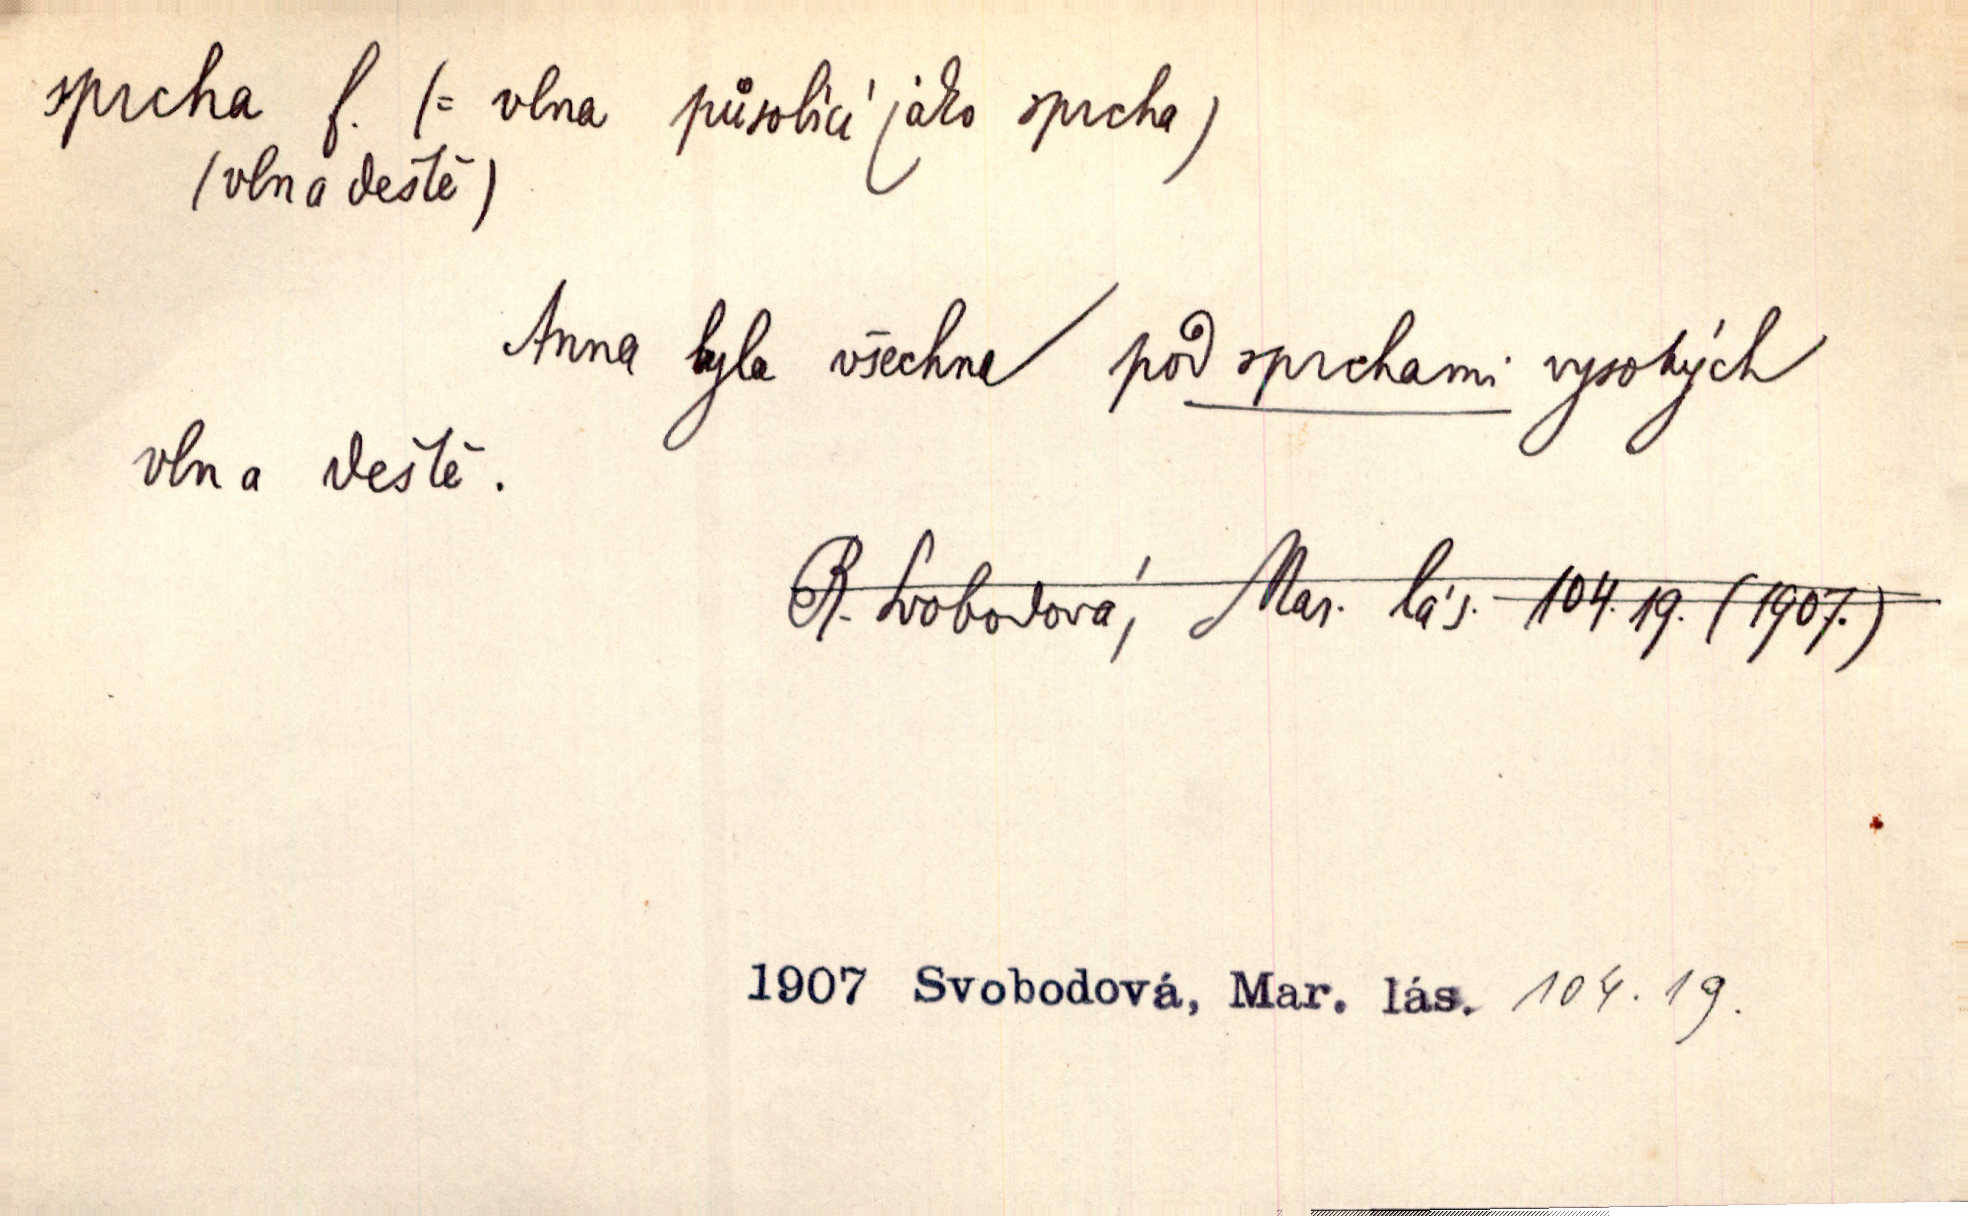 sprcha f. (= vlna působící jako sprcha)
(vln a deště)
Anna byla všechna pod sprchami vysokých
vln a deště.
R. Svobodová, Mar. lás. 104. 19. (1907.)
1907 Svobodová, Mar. lás. 104. 19.